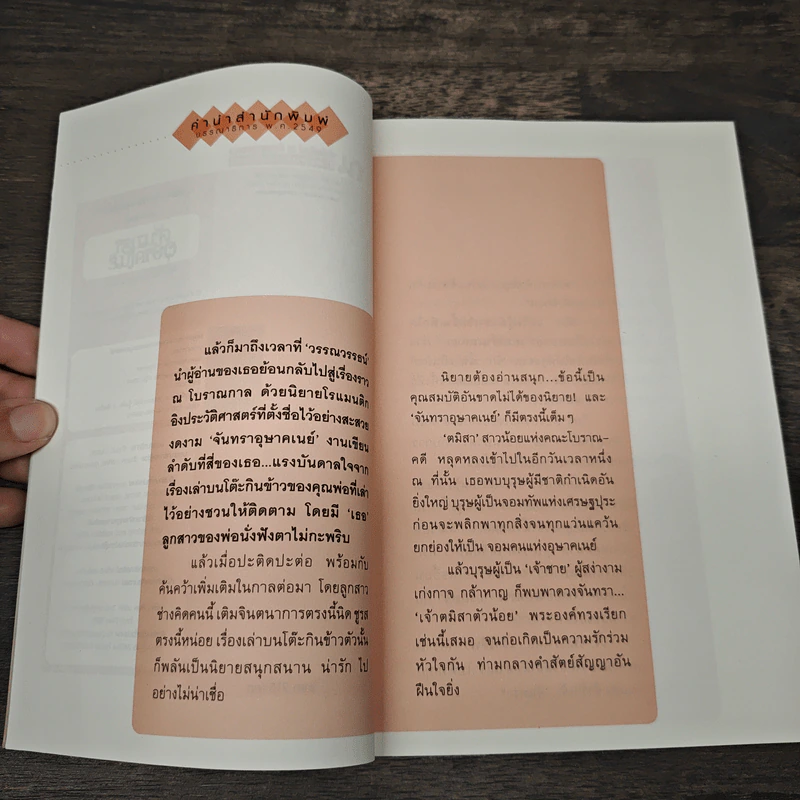 คำนำสำนักพิมพ์
บรรณาธิการ พ.ศ.2549
แล้วก็มาถึงเวลาที่ ‘วรรณวรรธน์’
นำผู้อ่านของเธอย้อนกลับไปสู่เรื่องราว
ณ โบราณกาล ด้วยนิยายโรแมนติก
อิงประวัติศาสตร์ที่ตั้งชื่อไว้อย่างสะสวย
งดงาม ‘จันทราอุษาคเนย์’ งานเขียน
ลำดับที่สี่ของเธอ...แรงบันดาลใจจาก
เรื่องเล่าบนโต๊ะกินข้าวของคุณพ่อที่เล่า
ไว้อย่างชวนให้ติดตาม โดยมี ‘เธอ’
ลูกสาวของพ่อนั่งฟังตาไม่กะพริบ
แล้วเมื่อปะติดปะต่อ พร้อมกับ
ค้นคว้าเพิ่มเติมในกาลต่อมา โดยลูกสาว
ช่างคิดคนนี้ เติมจินตนาการตรงนี้นิด ชูรส
ตรงนี้หน่อย เรื่องเล่าบนโต๊ะกินข้าวตัวนั้น
ก็พลันเป็นนิยายสนุกสนาน น่ารัก ไป
อย่างไม่น่าเชื่อ
นิยายต้องอ่านสนุก...ข้อนี้เป็น
คุณสมบัติอันขาดไม่ได้ของนิยาย! และ
‘จันทราอุษาคเนย์’ ก็มีตรงนี้เต็มๆ
‘ตมิสา’ สาวน้อยแห่งคณะโบราณ-
คดี หลุดหลงเข้าไปในอีกวันเวลาหนึ่ง
ณ ที่นั้น เธอพบบุรุษผู้มีชาติกำเนิดอัน
ยิ่งใหญ่ บุรุษผู้เป็นจอมทัพแห่งเศรษฐปุระ
ก่อนจะพลิกพาทุกสิ่งจนทุกแว่นแคว้น
ยกย่องให้เป็น จอมคนแห่งอุษาคเนย์
แล้วบุรุษผู้เป็น ‘เจ้าชาย’ ผู้สง่างาม
เก่งกาจ กล้าหาญ ก็พบพาดวงจันทรา...
‘เจ้าตมิสาตัวน้อย’ พระองค์ทรงเรียก
เช่นนี้เสมอ จนก่อเกิดเป็นความรักร่วม
หัวใจกัน ท่ามกลางคำสัตย์สัญญาอัน
ฝืนใจยิ่ง